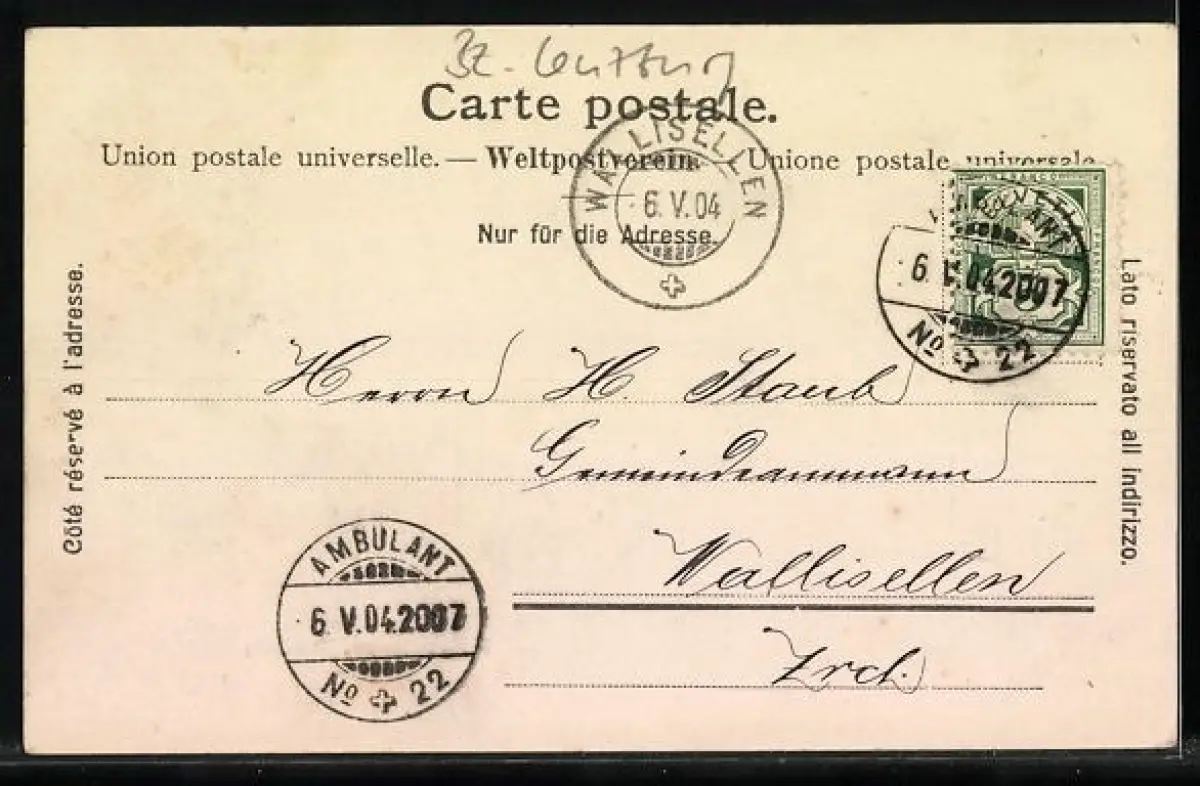 Bz. Lenzburg
Carte postale.
Union postale universelle. — Weltpostverein. — Unione postale universale
Nur für die Adresse.
WALLISELLEN
6. V. 04
FRANCO
AMBULANT
6. V. 04.2007
No 22
Côté réservé à l'adresse.
Lato riservato all indirizzo.
Herrn H. Staub
Gemeindeammann
Wallisellen
Zrch.
AMBULANT
6. V. 04.2007
No 22